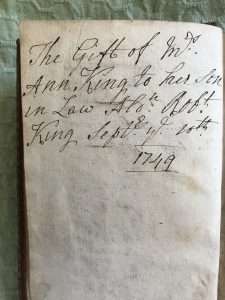 The Gift of Mrs.
Ann King to her son
in Law Robt.
King Septr. ye. 10th
1749